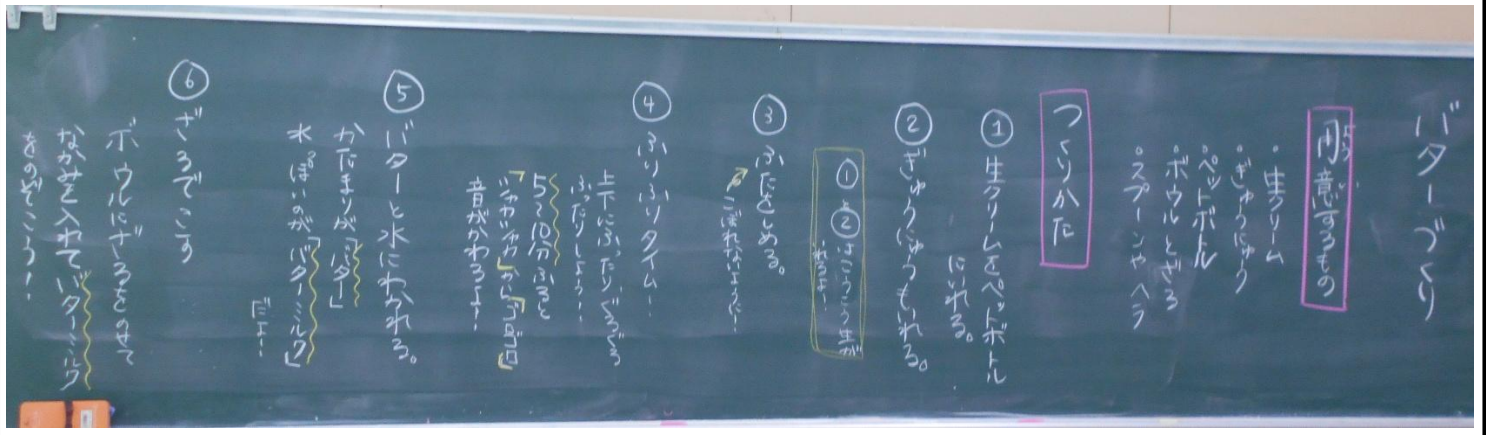 バターづくり
用意するもの
よう い
・生クリーム
・ぎゅうにゅう
・ペットボトル
・ボウルとざる
・スプーンや ヘラ
つくりかた
① 生クリームをペットボトル
にいれる。
② ぎゅうにゅうもいれる。
①と②はこうこう生が
いれるよ!
③ ふたをしめる。
こぼれないように!
④ ふりふりタイム!
上下にふったり、ぐるぐる
ふったりしよう!
5〜10分ふると
「シャカシャカ」から「ゴロゴロ」
音がかわるよ!
⑤ バターと水にわかれる。
かたまりが「バター」
水っぽいのが「バターミルク」
だよ!
⑥ ざるでこす
ボウルにざるをのせて
なかみを入れてバターミルク
をのぞこう!